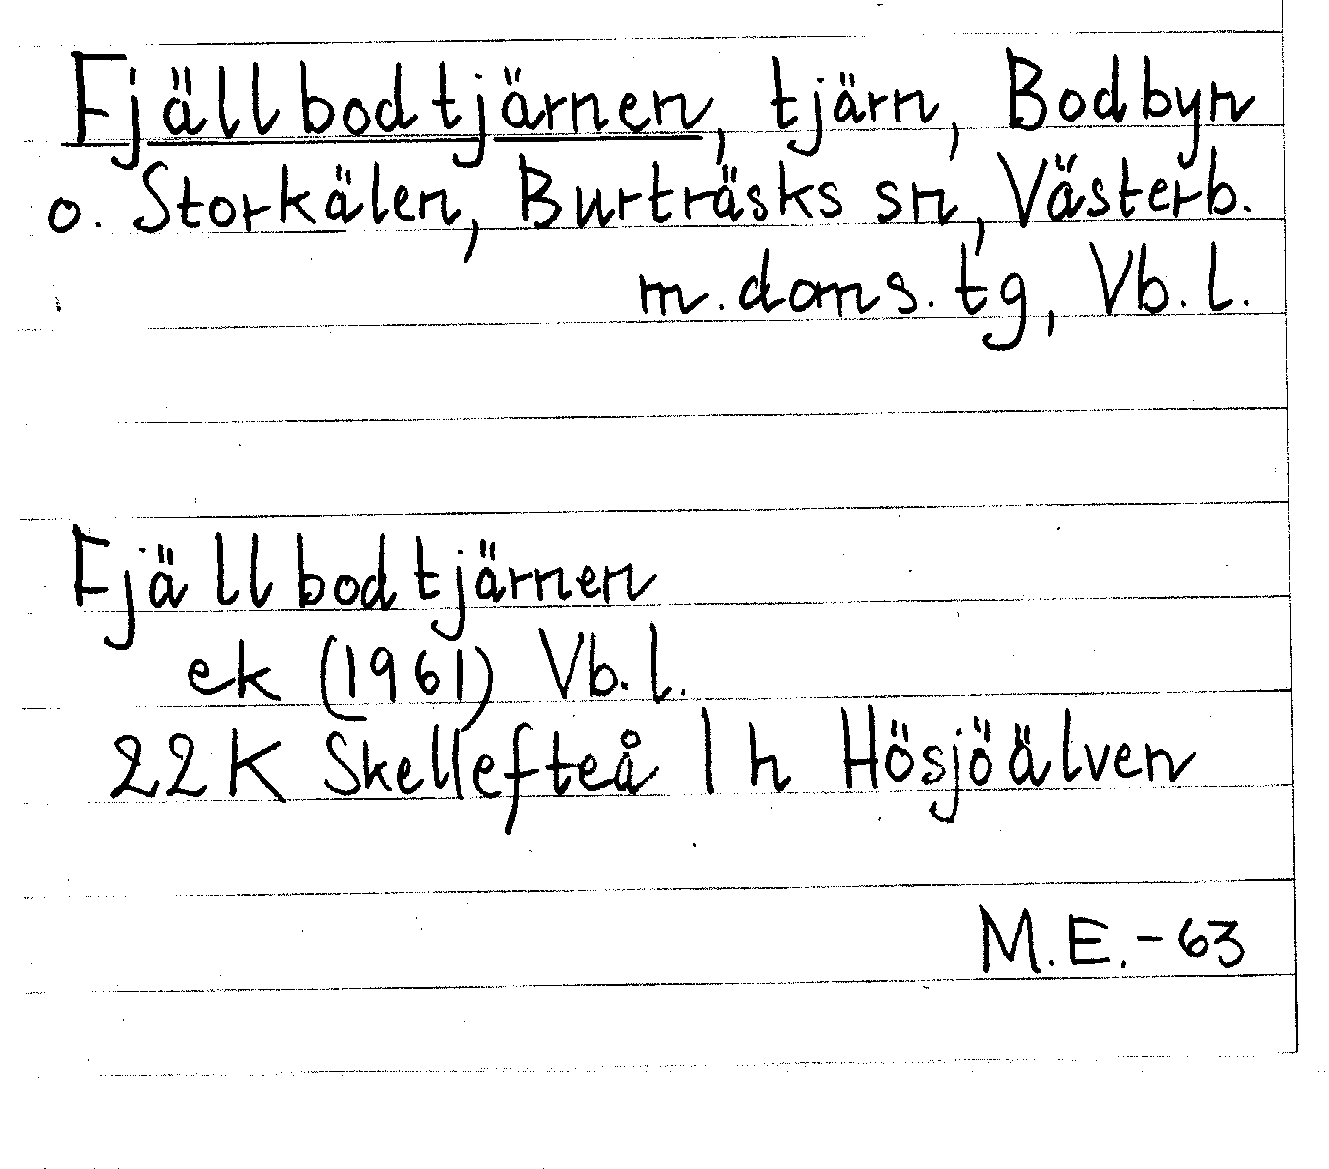 Fjällbodtjärnen, tjärn, Bodbyn
o. Storkälen, Burträsks sn, Västerb.
m. doms. tg, Vb. l.
Fjällbodtjärnen
ek (1961) Vb. l.
22 K Skellefteå l h Hösjöälven
M.E.-63